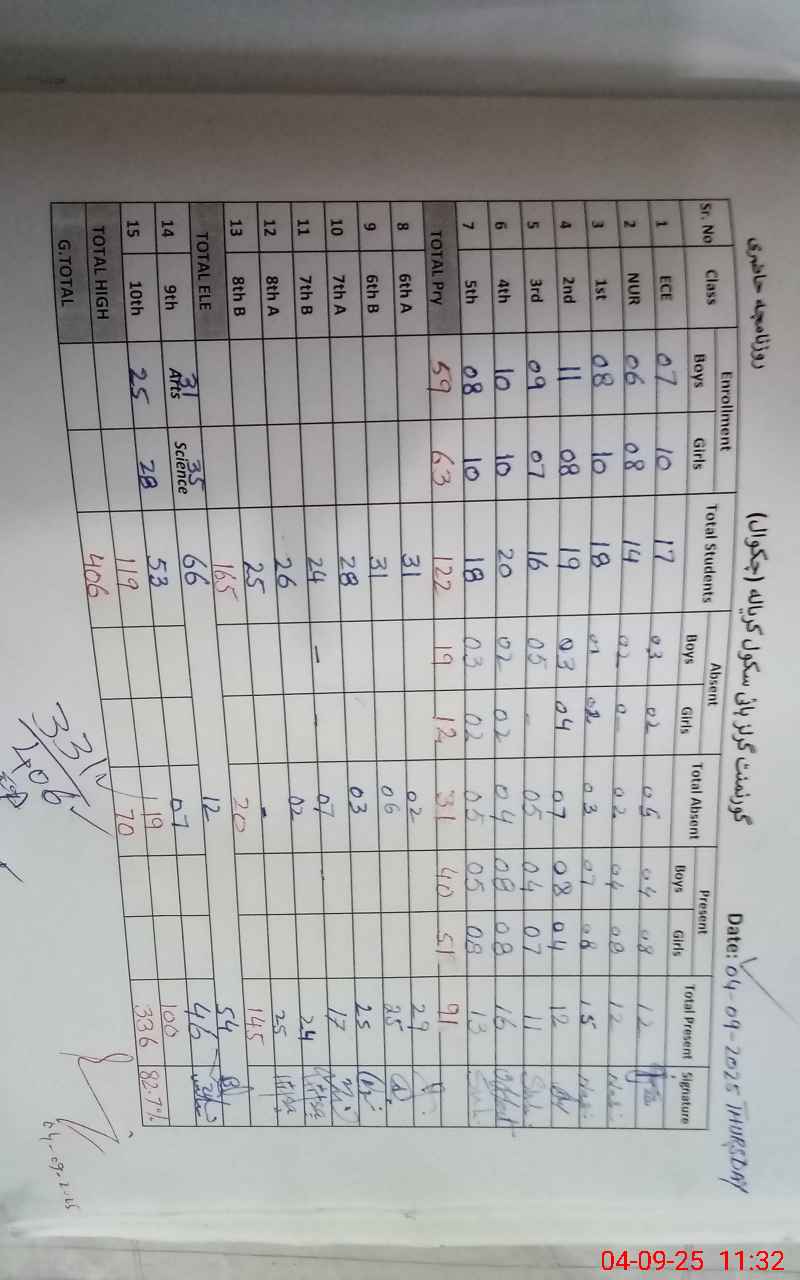 روزنامچہ حاضری گورنمنٹ گرلز ہائی سکول کریالہ (چکوال) Date: 04-09-2025 THURSDAY
Sr. No Class Enrollment Total Students Absent Total Absent Present Total Present Signature
Boys Girls Boys Girls Boys Girls
1 ECE 07 10 17 03 02 05 04 08 12
2 NUR 06 08 14 02 0 02 04 08 12
3 1st 08 10 18 01 02 03 07 08 15
4 2nd 11 08 19 03 04 07 08 04 12
5 3rd 09 07 16 05 - 05 04 07 11
6 4th 10 10 20 02 02 04 08 08 16
7 5th 08 10 18 03 02 05 05 08 13
TOTAL Pry 59 63 122 19 12 31 40 51 91
8 6th A 31 02 29
9 6th B 31 06 25
10 7th A 28 03 25
11 7th B 24 - - 07 - 17
12 8th A 26 02 24
13 8th B 25 - 25
TOTAL ELE 165 20 145
14 9th 31 Arts 35 Science 66 12 54
15 10th 25 28 53 07 46
TOTAL HIGH 119 19 100
G.TOTAL 406 70 336 82.7%
331
406
04-09-2025
04-09-25 11:32